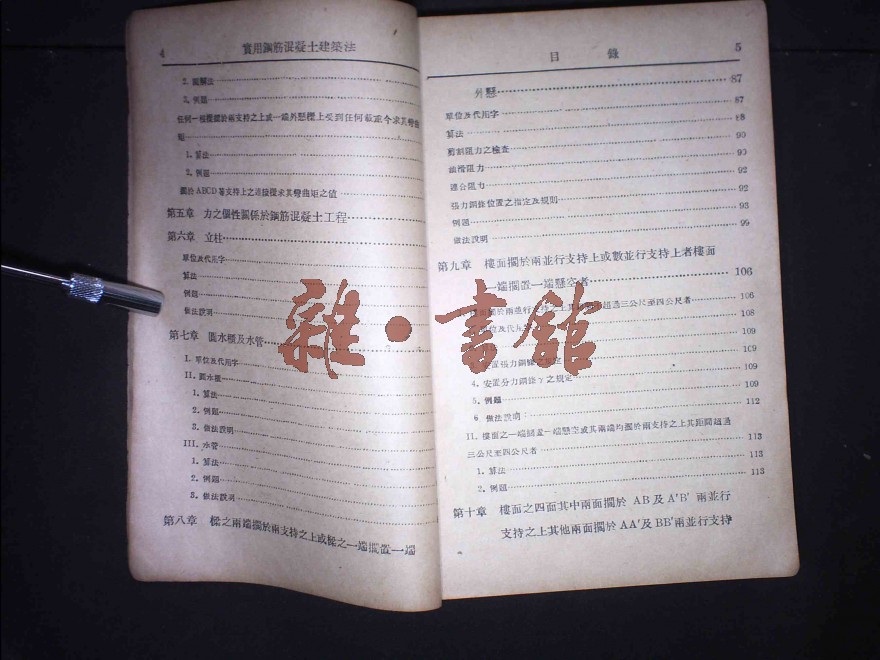 4 實用鋼筋混凝土建築法
2. 圖解法
3. 例題
任何一樑擱於兩支持之上或一端外懸樑上受到任何載重今求其彎曲
矩
1. 算法
2. 例題
擱於ABCD等支持上之連接樑求其彎曲矩之值
第五章 力之個性關係於鋼筋混凝土工程
第六章 立柱
單位及代用字
算法
例題
做法說明
第七章 圓水櫃及水管
I. 單位及代用字
II. 圓水櫃
1. 算法
2. 例題
3. 做法說明
III. 水管
1. 算法
2. 例題
3. 做法說明
第八章 樑之兩端擱於兩支持之上或樑之一端擱置一端
目錄 5
外懸 87
單位及代用字 87
算法 88
剪割阻力之檢查 90
溜滑阻力 90
連合阻力 92
張力鋼條位置之指定及規則 92
例題 93
做法說明 99
第九章 樓面擱於兩並行支持上或數並行支持上者樓面
一端擱置一端懸空者 106
106
單位及代用 108
109
安置張力鋼條之規定 109
4. 安置分力鋼條 γ 之規定 109
5. 例題 109
6 做法說明 112
II. 樓面之一端擱置一端懸空或其兩端均擱於兩支持之上其距間超過
三公尺至四公尺者 113
1. 算法 113
2. 例題 113
第十章 樓面之四面其中兩面擱於 AB及A'B' 兩並行
支持之上其他兩面擱於AA'及BB'兩並行支持
雜·書館